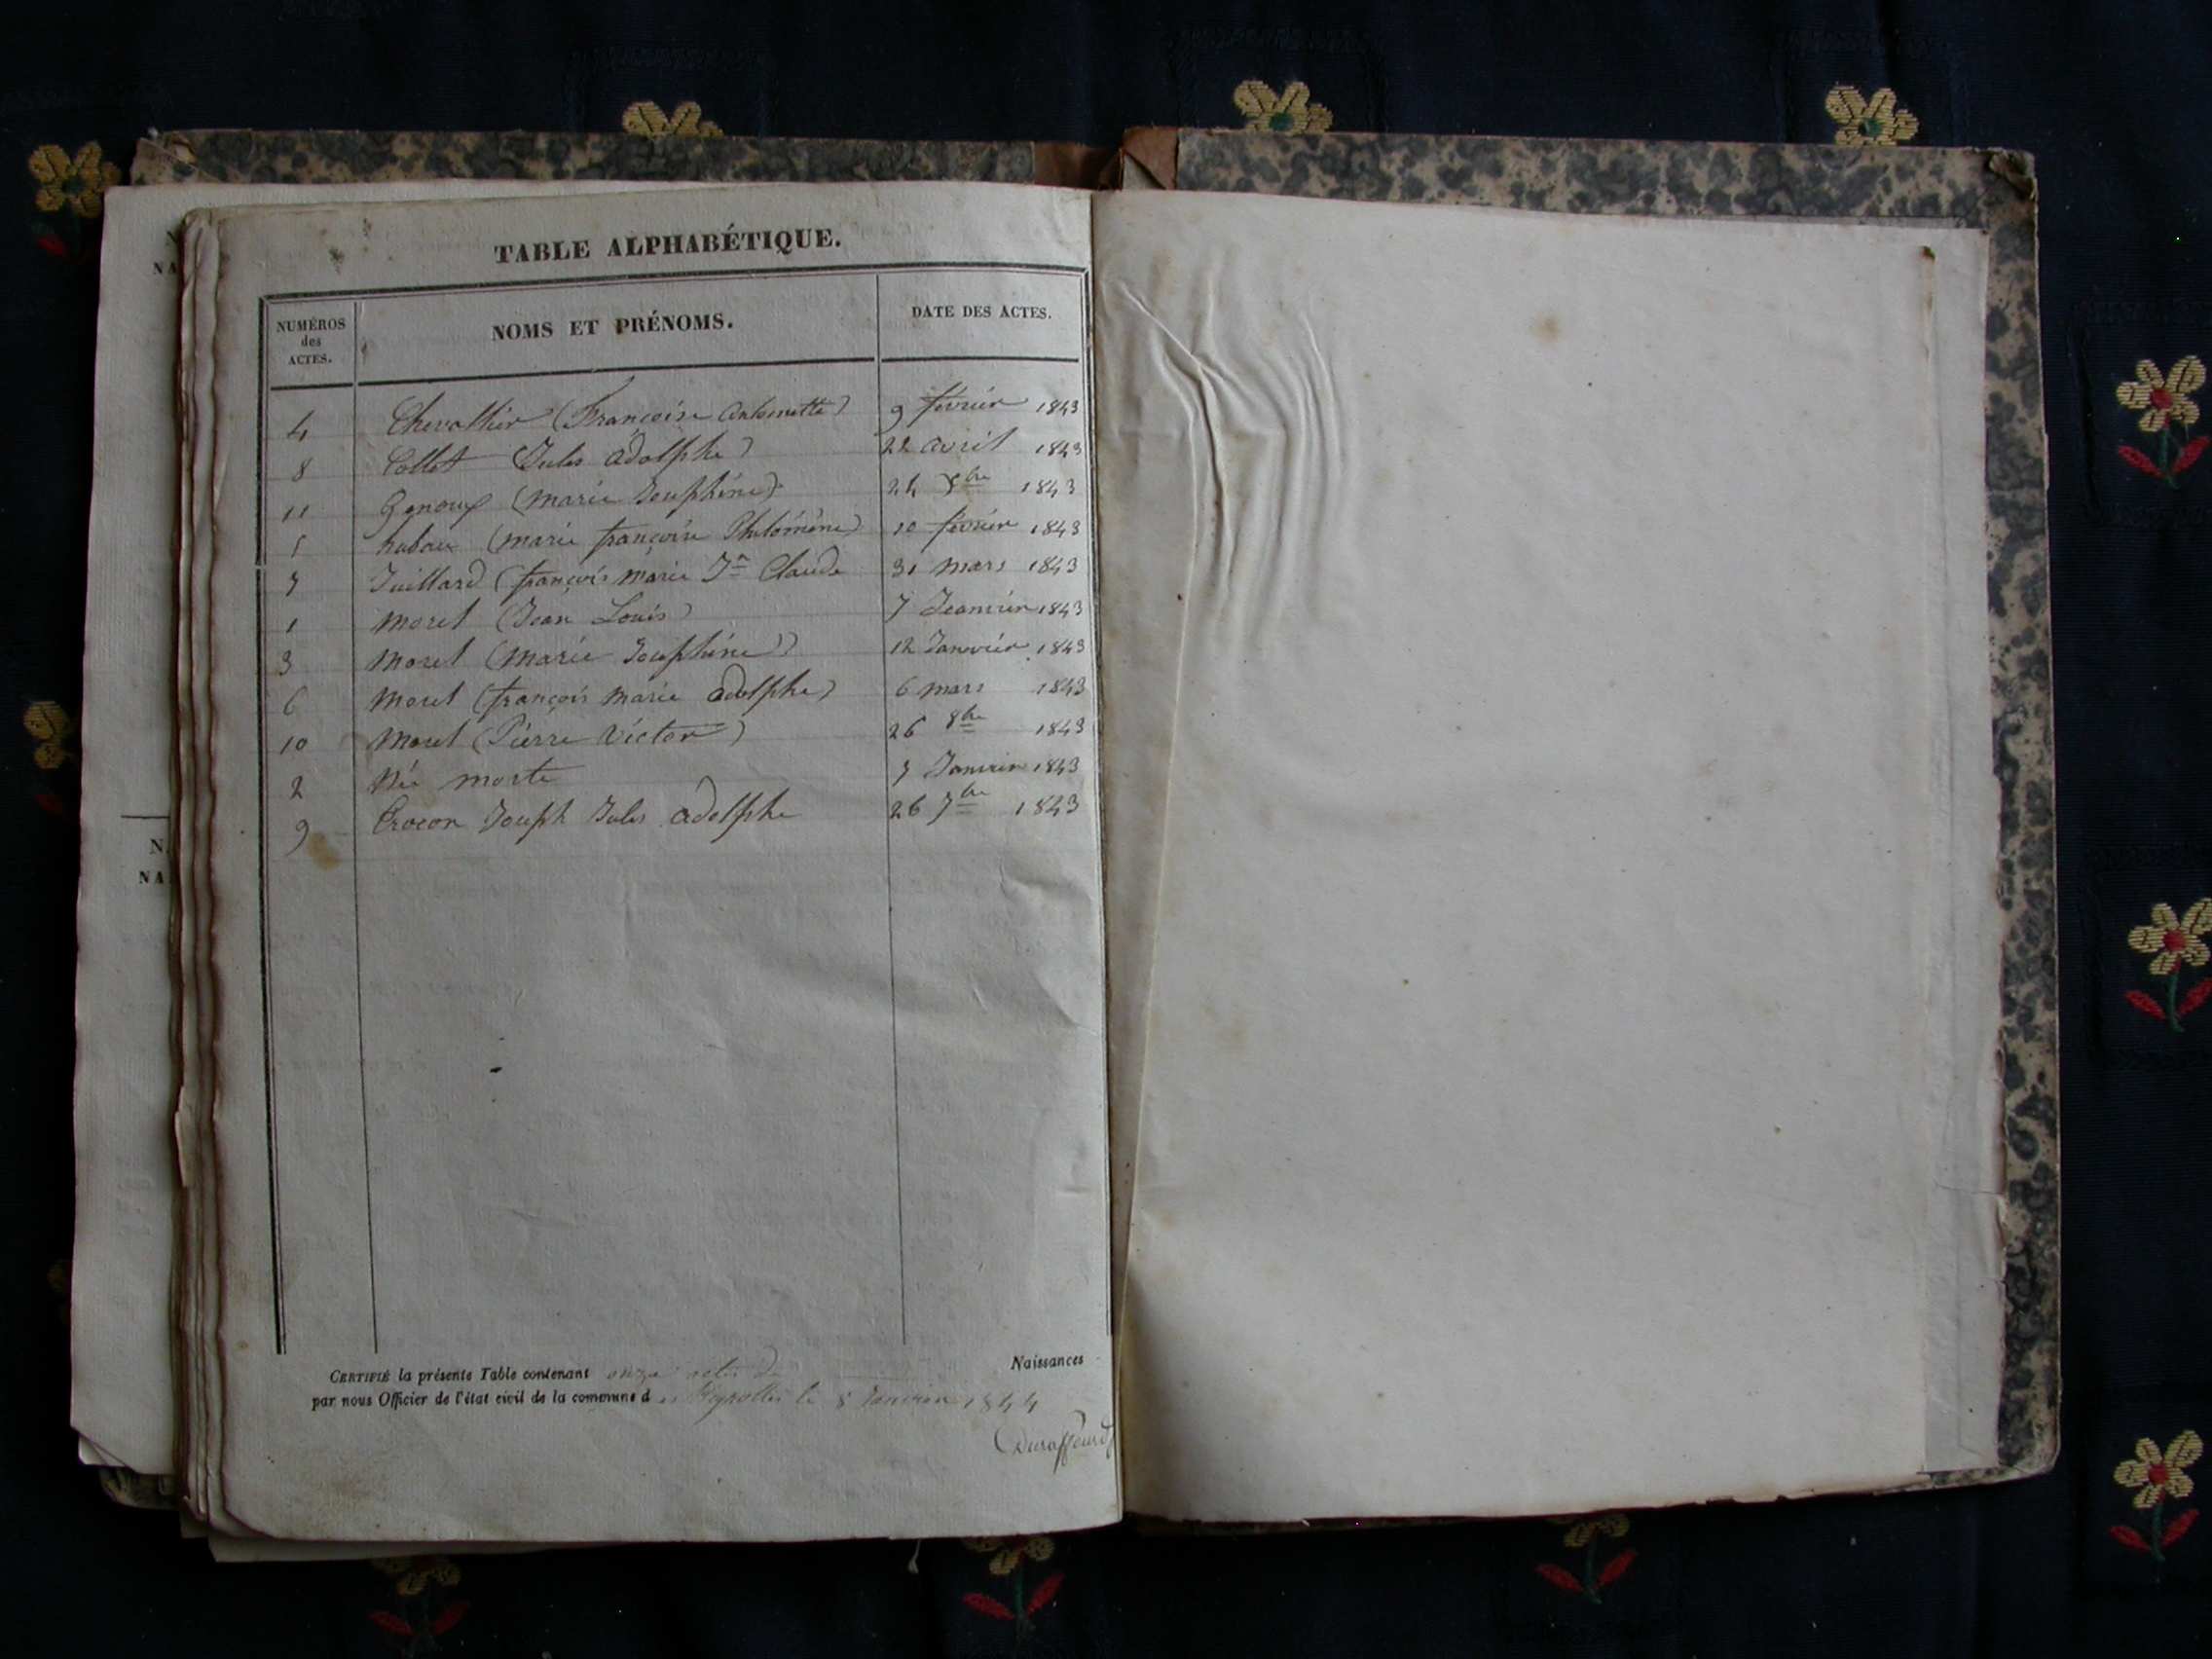 N
NA
TABLE ALPHABÉTIQUE.
NUMÉROS
des
ACTES.
NOMS ET PRÉNOMS.
DATE DES ACTES.
4 Chevallier (Françoise Antoinette) 9 février 1843
8 Collet (Jules Adolphe) 22 avril 1843
11 Genoux (marie Josephine) 1843
5 (marie françoise Philomène) 10 février 1843
7 Juillard (françois marie Jn Claude 31 mars 1843
1 Moret (Jean Louis) 7 Jeanvier 1843
3 Moret (Marie Josephine) 12 Janvier 1843
6 Moret (françois marie adolphe) 6 mars 1843
10 Moret (Pierre Victor) 26 8bre 1843
2 Née morte 7 Janvier 1843
9 Joseph Jules Adolphe 26 7bre 1843
N
NA
CERTIFIÉ la présente Table contenant onze actes de Naissances
par nous Officier de l'état civil de la commune d es le 8 Janvier 1844